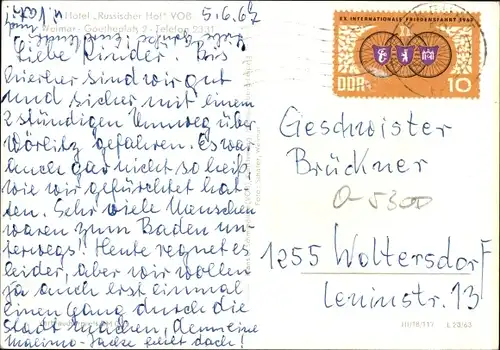 Hotel „Russischer Hof“ VOB
Weimar · Goetheplatz 2 · Telefon 2331
5.6.67
Liebe Kinder! Bis
hierher sind wir gut
und sicher mit einem
2 stündigen Umweg über
Wörlitz gefahren. Es war
auch gar nicht so heiß,
wie wir gefürchtet hat-
ten. Sehr viele Menschen
waren zum Baden un-
terwegs! Heute regnet es
leider, aber wir wollen
ja auch erst einmal
einen Gang durch die
Stadt machen, denn eine
Malimo-Jacke fehlt doch!
XX. INTERNATIONALE FRIEDENSFAHRT 1967
DDR 10
Geschwister
Brückner
0-5300
1255 Woltersdorf
Leninstr. 13
III/18/117 L 20/63